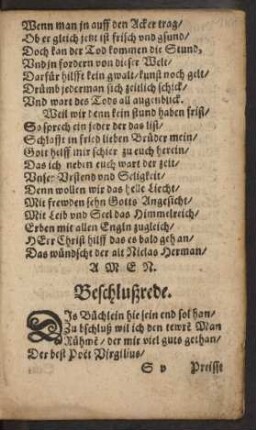 Wenn man jn auff den Acker trag/
Ob er gleich jetzt ist frisch vnd gsund/
Doch kan der Tod kommen die Stund,
Vnd jn fordern von dieser Welt/
Darfür hilfft kein gwalt/kunst noch gelt/
Drümb jederman sich zeitlich schick/
Vnd wart des Tods all augenblick.
Weil wir denn kein stund haben frist/
So sprech ein jeder der das list/
Schlafft in fried lieben Brüder mein/
Gott hilfft mir schier zu euch herein/
Das ich neben euch wart der zeit/
Vnser Vrstend vnd Seligkeit/
Denn wollen wir das helle Liecht/
Mit frewden sehn Gotts Angesicht/
Mit Leib vnd Seel das Himmelreich/
Erben mit allen Engln zugleich/
HErr Christ hilff das es bald geh an/
Das wündscht der alt Niclas Herman/
AMEN.
Beschlußrede.
DIs Büchlein hie sein end sol han/
Zu bschluß wil ich den tewrē Man
Rühmē/ der mir viel guts gethan/
Der best Poët Virgilius/
S v Preisst